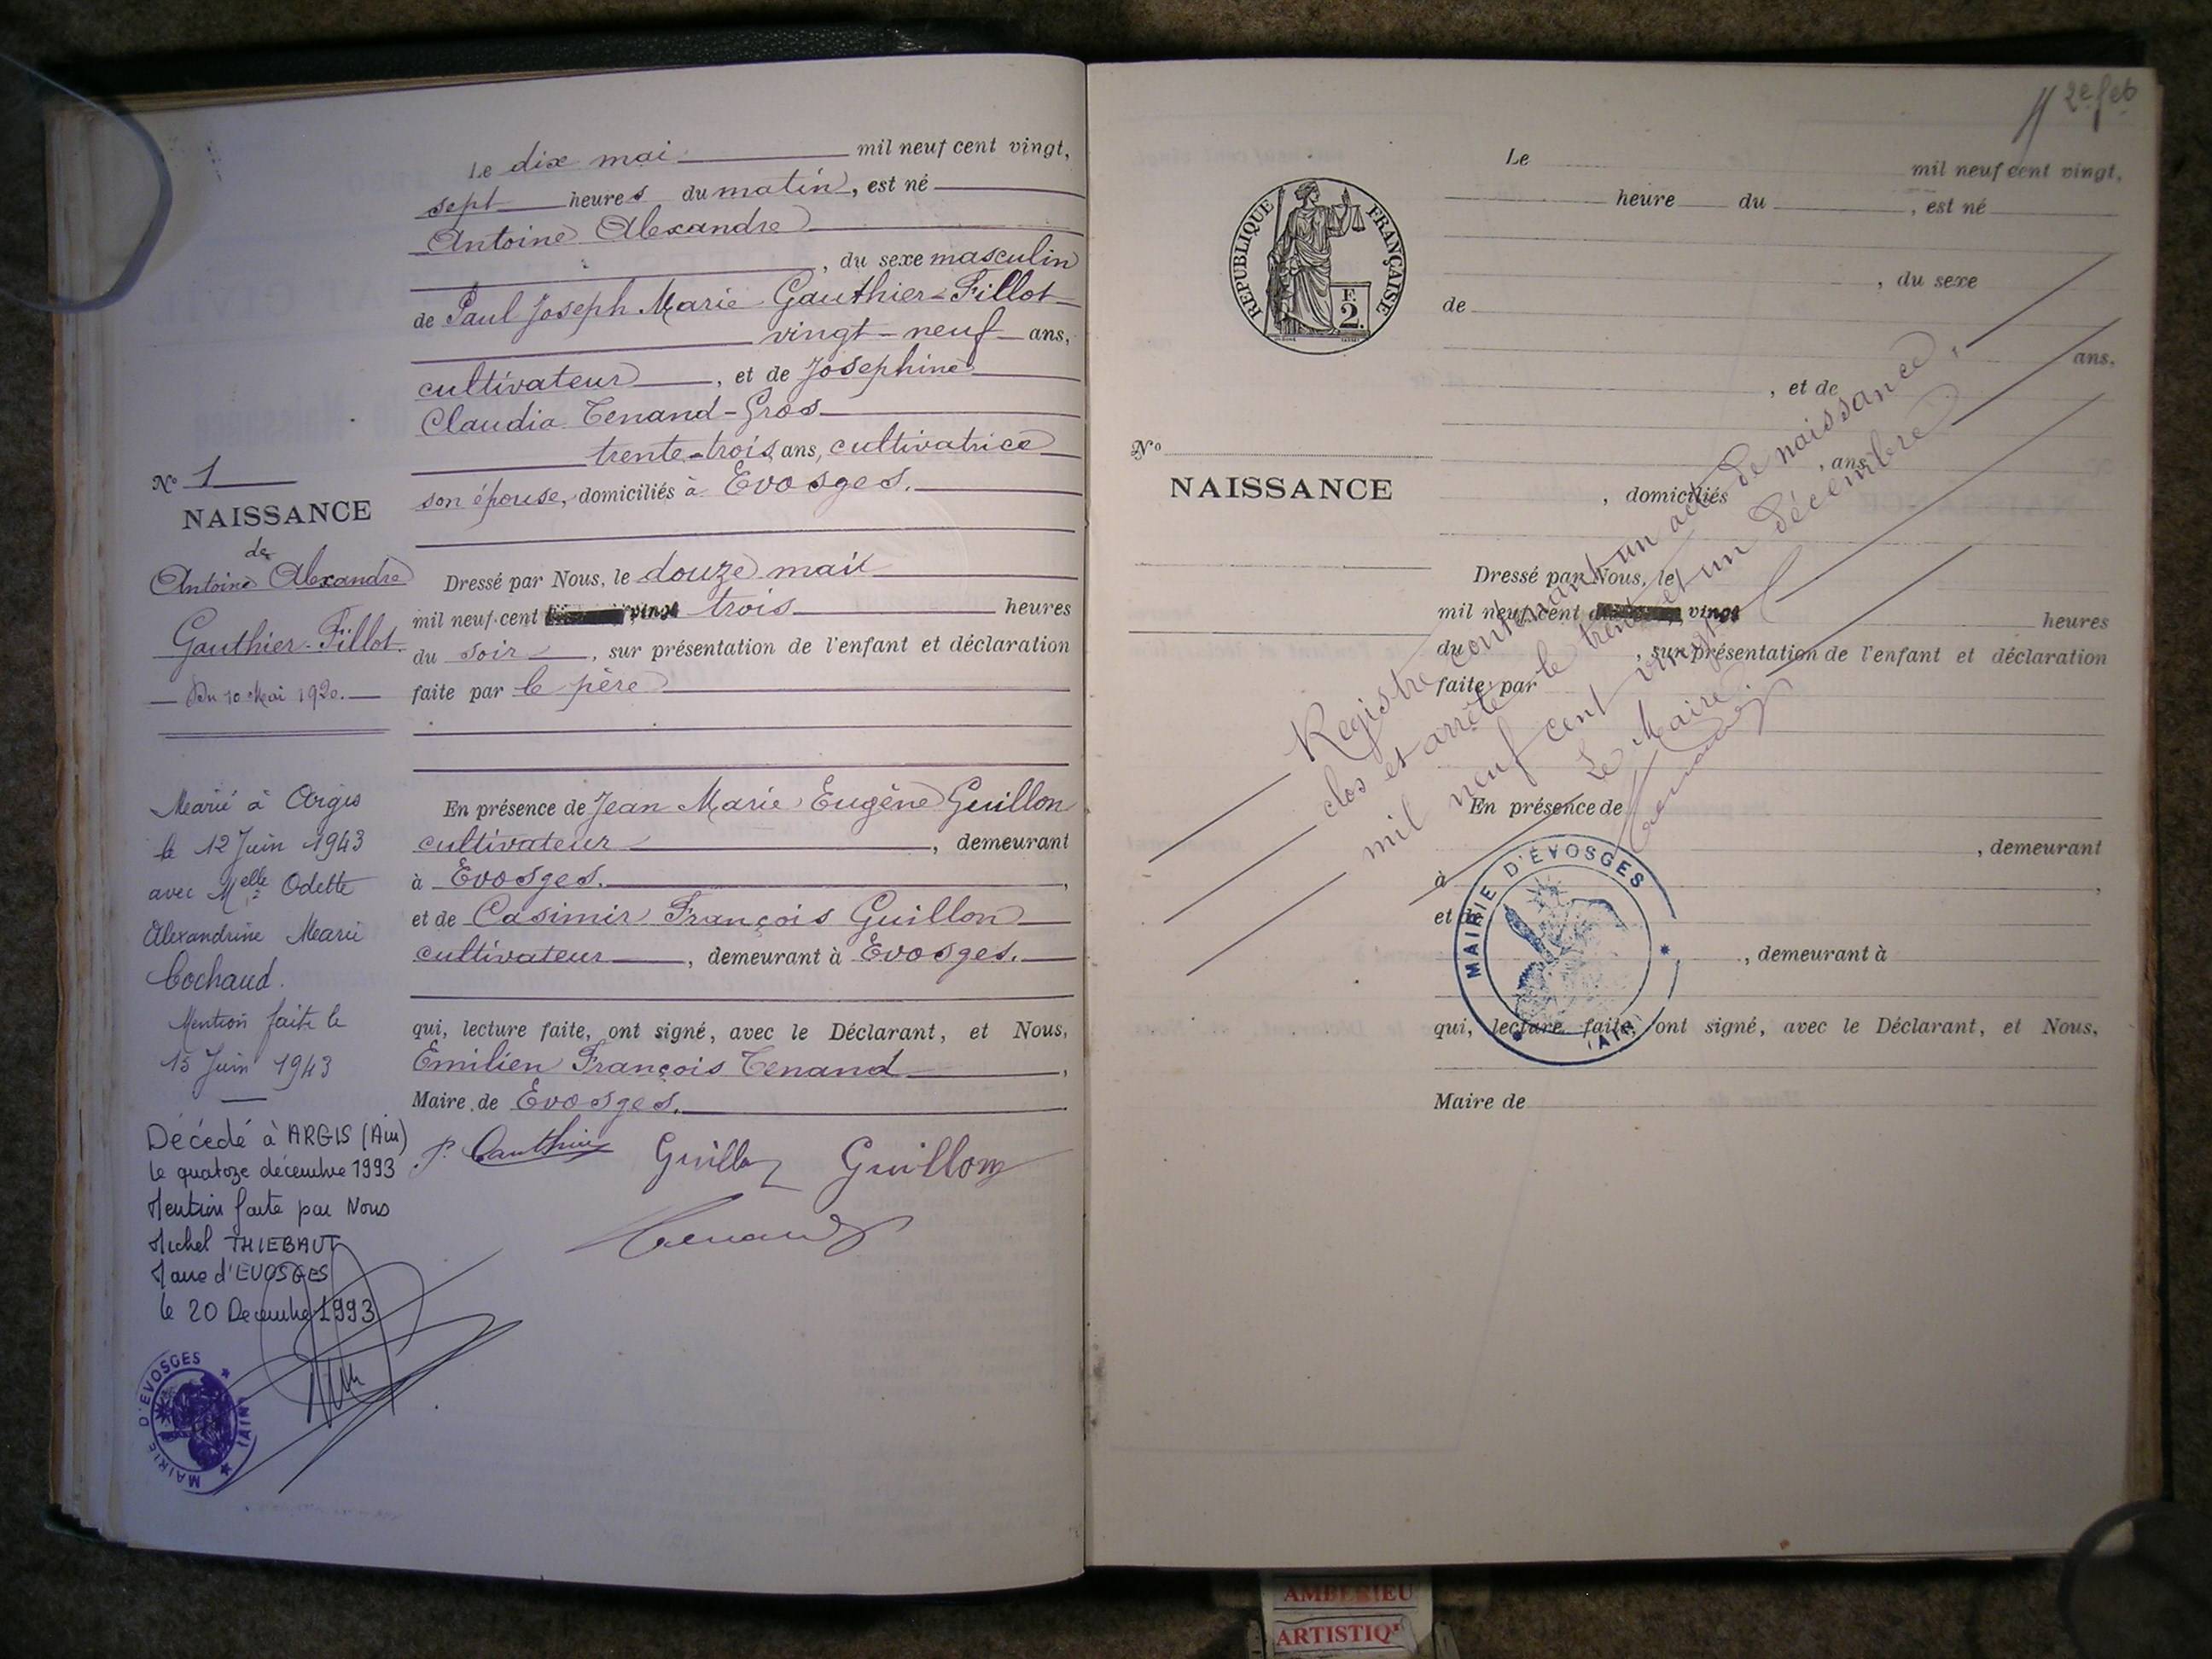 Le dix mai mil neuf cent vingt,
sept heures du matin, est né
Antoine Alexandre
, du sexe masculin
de Paul Joseph Marie Gauthier-Fillot
vingt-neuf ans,
cultivateur, et de Josephine
Claudia Tenand-Gros
trente-trois ans, cultivatrice
son épouse, domiciliés à Evosges.
Dressé par Nous, le douze mai
mil neuf cent vingt trois heures
du soir, sur présentation de l'enfant et déclaration
faite par le père
En présence de Jean Marie Eugène Guillon
cultivateur, demeurant
à Evosges.,
et de Casimir François Guillon
cultivateur, demeurant à Evosges.
qui, lecture faite, ont signé, avec le Déclarant, et Nous,
Emilien François Tenand,
Maire de Evosges.
P. Gauthier Guillon Guillon
Tenand
No 1
NAISSANCE
de
Antoine Alexandre
Gauthier-Fillot.
Du 10 Mai 1920.
Marié à Argis
le 12 Juin 1943
avec Melle Odette
Alexandrine Marie
Cochaud.
Mention faite le
15 Juin 1943
Décédé à ARGIS (Ain)
le quatoze décembre 1993
Mention faite par Nous
Michel THIEBAUT
Maire d'EVOSGES
le 20 Decembre 1993
MAIRIE D'EVOSGES (AIN)
2e feb
REPUBLIQUE FRANÇAISE
F.
2.
Le mil neuf cent vingt,
heure du , est né
, du sexe
de
ans,
, et de
, ans,
No
NAISSANCE
, domiciliés
Dressé par Nous, le
mil neuf cent vingt
heures
du , sur présentation de l'enfant et déclaration
faite par
En présence de
, demeurant
à ,
et de
, demeurant à
qui, lecture faite, ont signé, avec le Déclarant, et Nous,
Maire de
Registre contenant un acte de naissance,
clos et arrêté le trente et un décembre
mil neuf cent vingt
Le Maire,
Tenand
MAIRIE D'ÉVOSGES
(AIN)
AMBERIEU
ARTISTIQ